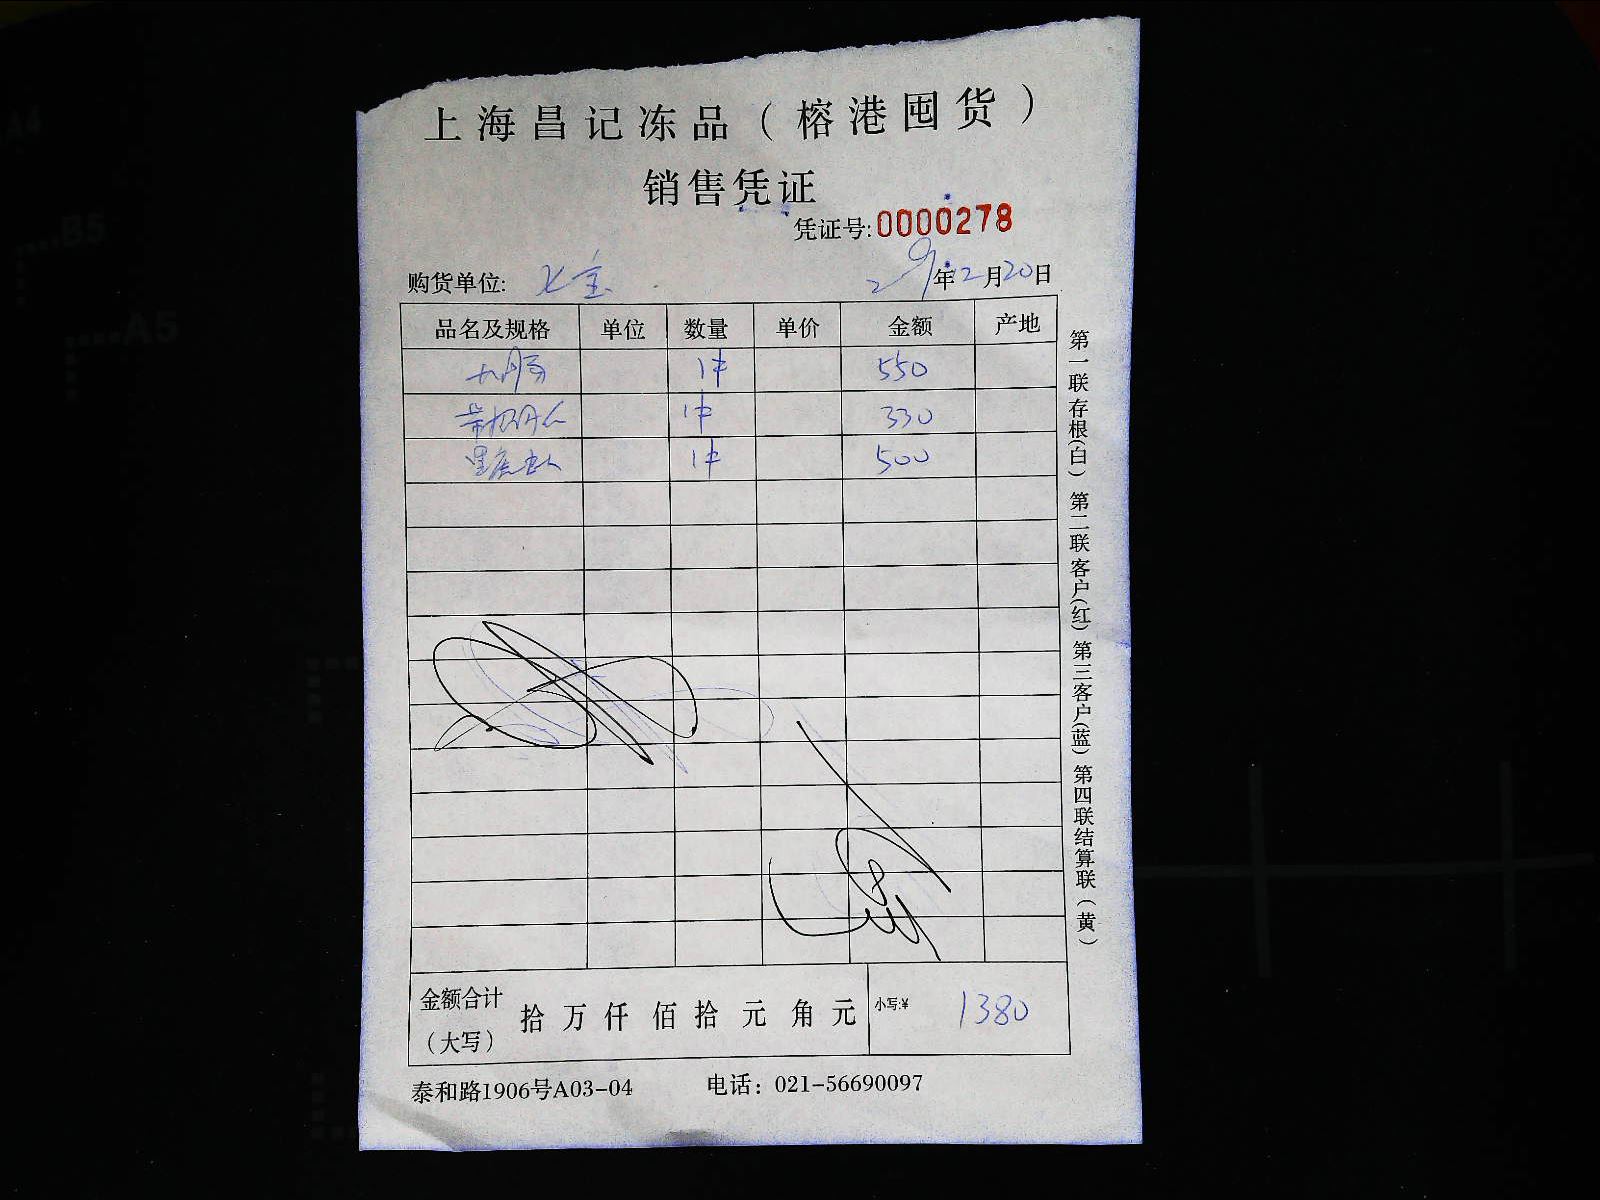 上海昌记冻品（榕港囤货）
销售凭证
凭证号:0000278
购货单位: 七宝 29年2月20日
品名及规格 单位 数量 单价 金额 产地
1件 550
1件 330
1件 500
金额合计（大写） 拾 万 仟 佰 拾 元 角 元 小写:¥ 1380
泰和路1906号A03-04 电话：021-56690097
第一联存根(白) 第二联客户(红) 第三客户(蓝) 第四联结算联(黄)
A4
B5
A5